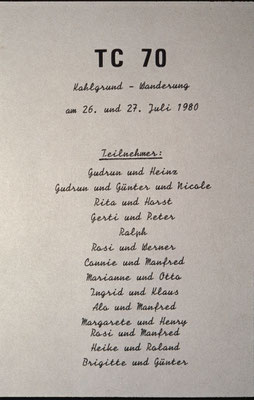 TC 70
Kahlgrund - Wanderung
am 26. und 27. Juli 1980
Teilnehmer:
Gudrun und Heinz
Gudrun und Günter und Nicole
Rita und Horst
Gerti und Peter
Ralph
Rosi und Werner
Connie und Manfred
Marianne und Otto
Ingrid und Klaus
Alo und Manfred
Margarete und Henry
Rosi und Manfred
Heike und Roland
Brigitte und Günter